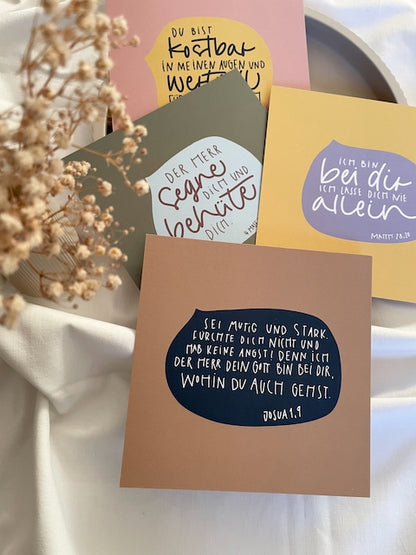 DU BIST
kostbar
IN MEINEN AUGEN UND
wertvoll
DER HERR
segne
DICH UND
behüte
DICH.
ICH BIN
bei dir
ICH LASSE DICH NIE
allein
SEI MUTIG UND STARK.
FÜRCHTE DICH NICHT UND
HAB KEINE ANGST! DENN ICH
DER HERR DEIN GOTT BIN BEI DIR,
WOHIN DU AUCH GEHST.
JOSUA 1,9